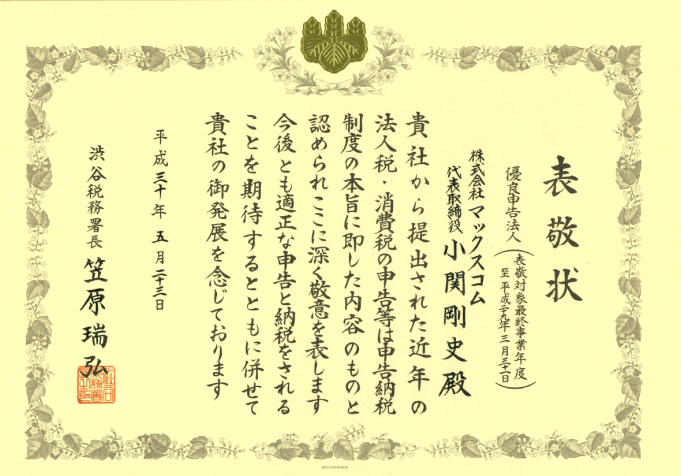 表敬状
優良申告法人
(表敬対象最終事業年度
至平成二十九年三月三十一日)
株式会社マックスコム
代表取締役 小関剛史殿
貴社から提出された近年の
法人税・消費税の申告等は申告納税
制度の本旨に即した内容のものと
認められここに深く敬意を表します
今後とも適正な申告と納税をされる
ことを期待するとともに併せて
貴社の御発展を念じております
平成三十年五月二十三日
渋谷税務署長 笠原瑞弘